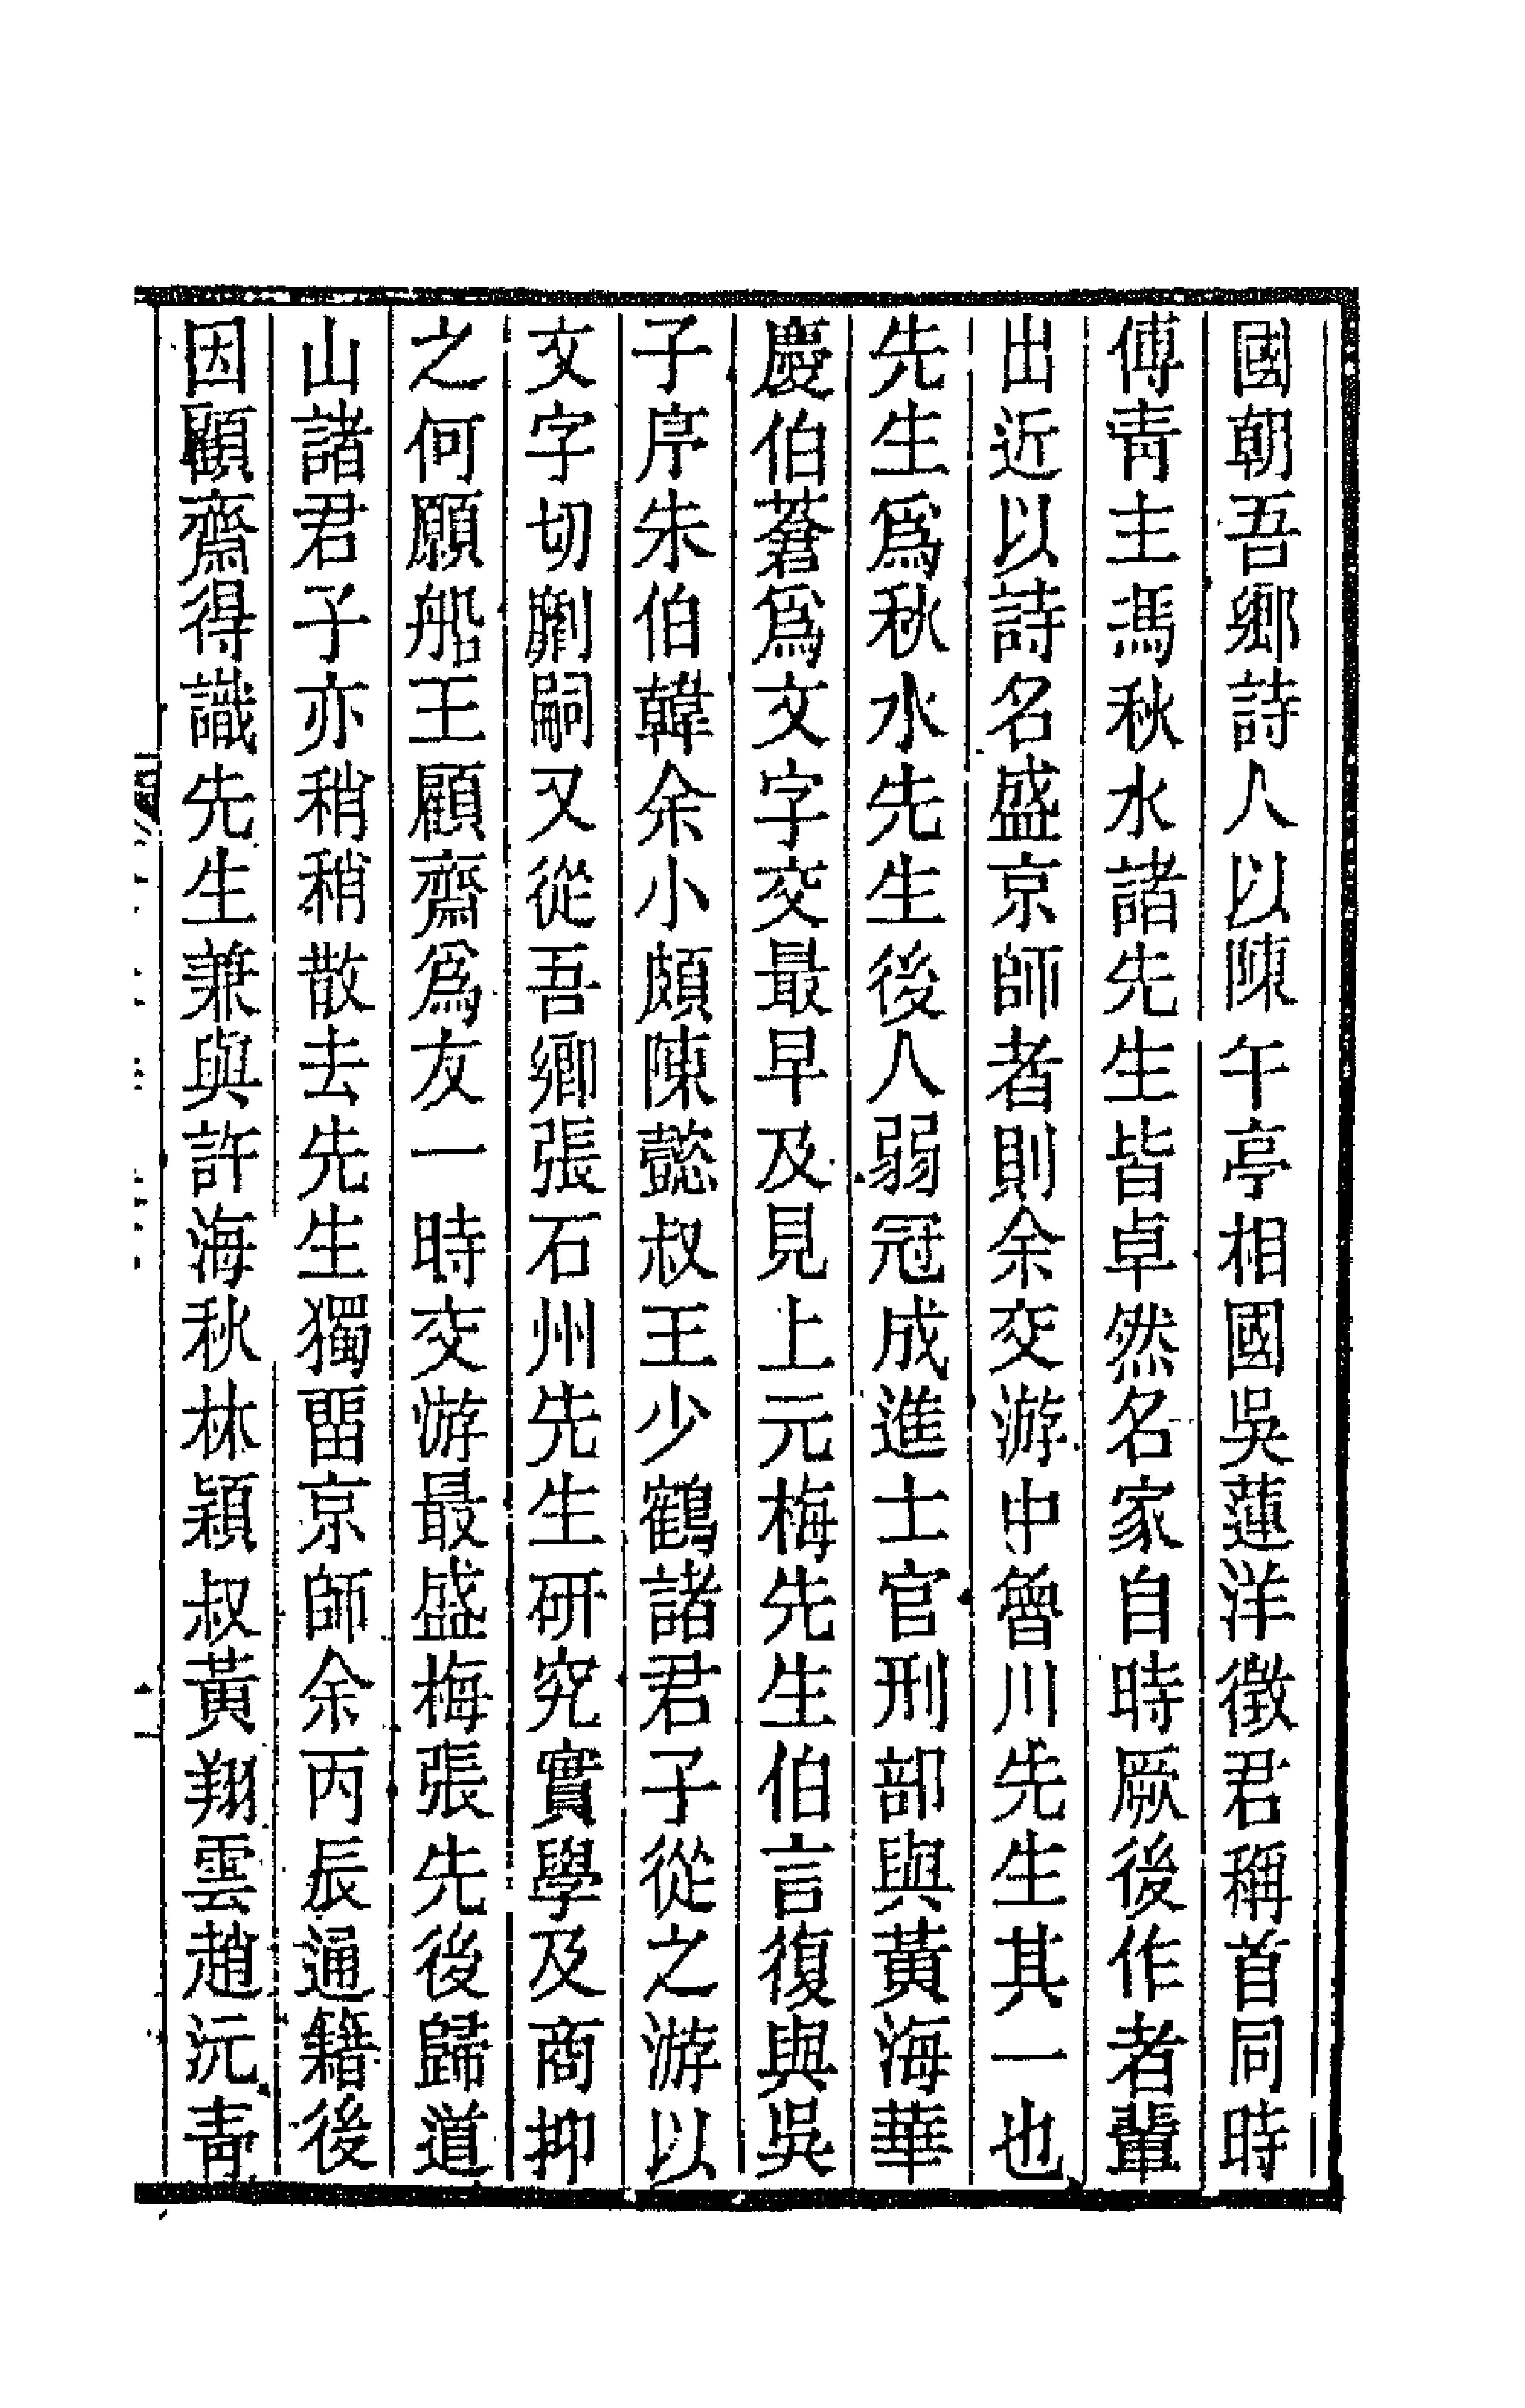 國朝吾鄉詩人以陳午亭相國吳蓮洋徵君稱首同時
傅靑主馮秋水諸先生皆卓然名家自時厥後作者輩
出近以詩名盛京師者則余交游中魯川先生其一也
先生爲秋水先生後人弱冠成進士官刑部與黃海華
慶伯蒼爲文字交最早及見上元梅先生伯言復與吳
子序朱伯韓余小頗陳懿叔王少鶴諸君子從之游以
文字切劘嗣又從吾鄉張石州先生研究實學及商抑
之何願船王顧齋爲友一時交游最盛梅張先後歸道
山諸君子亦稍稍散去先生獨畱京師余丙辰通籍後
因顧齋得識先生兼與許海秋林穎叔黃翔雲趙沅靑